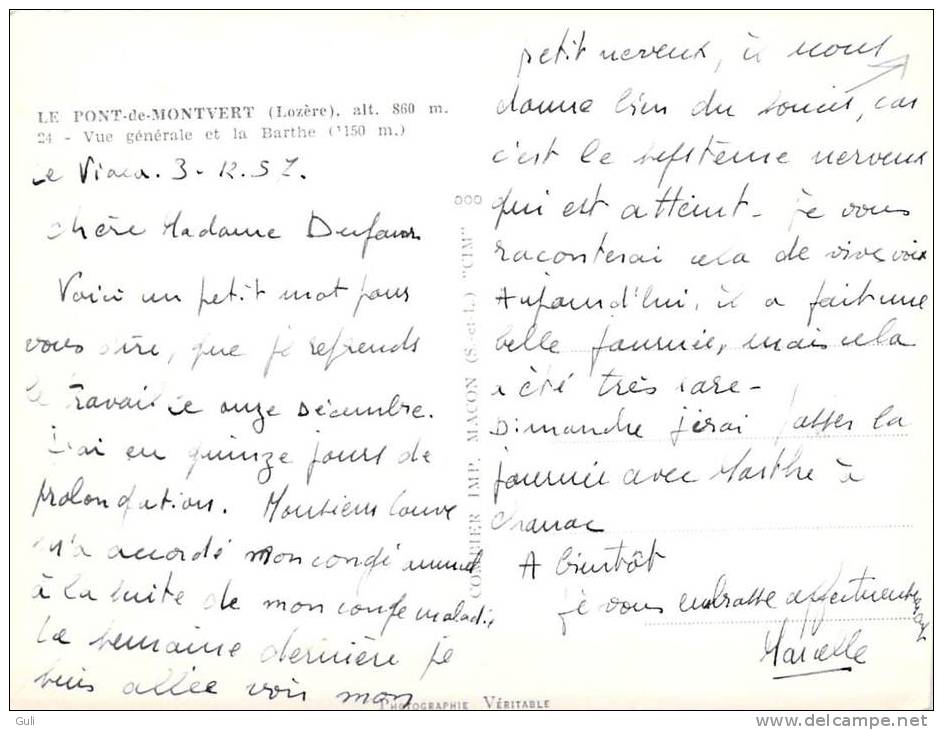 LE PONT-de-MONTVERT (Lozère), alt. 860 m.
24 - Vue générale et la Barthe (1150 m.)
Le Viala. 3-12.57.
Chère Madame Dufour
Voici un petit mot pour
vous dire, que je reprends
le travail le onze Décembre.
J'ai eu quinze jours de
prolongation. Monsieur
m'a accordé mon congé annuel
à la suite de mon congé maladie.
La semaine dernière je
suis allée voir mon
petit neveux, il nous
donne lieu du soucis, car
c'est le système nerveux
qui est atteint - je vous
raconterai cela de vive voix
Aujourd'hui, il a fait une
belle journée, mais cela
a été très rare -
Dimanche j'irai passer la
journée avec Marthe à
Chanac
A bientôt
je vous embrasse affectueusement
Marcelle
COMBIER IMP. MACON (S.-et-L.) "CIM"
PHOTOGRAPHIE VÉRITABLE
Guli
www.delcampe.net